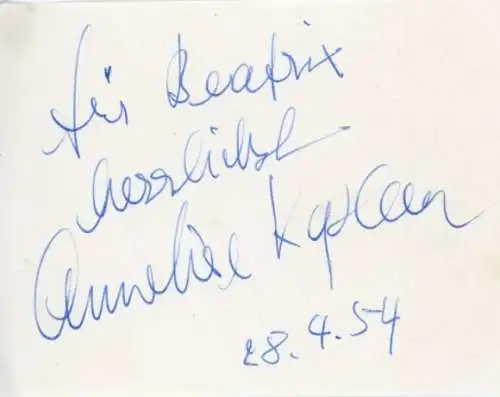 für Beatrix
herzlichst
Anneliese Kaplan
28.4.54